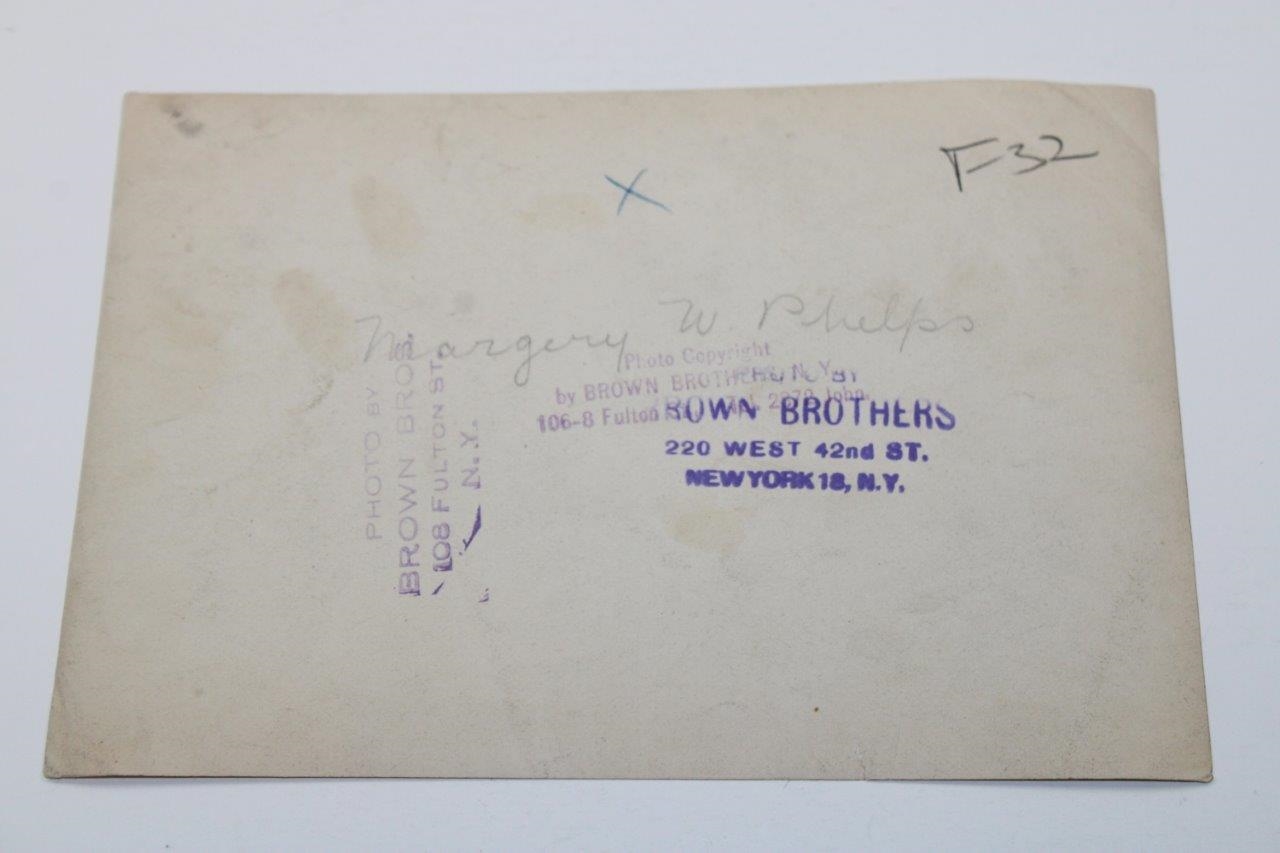 F-32
X
Margery W. Phelps
Photo Copyright
by BROWN BROTHERS, N. Y.
106-8 Fulton Tel. 2979 John.
BY
BROWN BROTHERS
220 WEST 42nd ST.
NEW YORK 18, N.Y.
PHOTO BY
BROWN BROS.
108 FULTON ST.
N.Y.